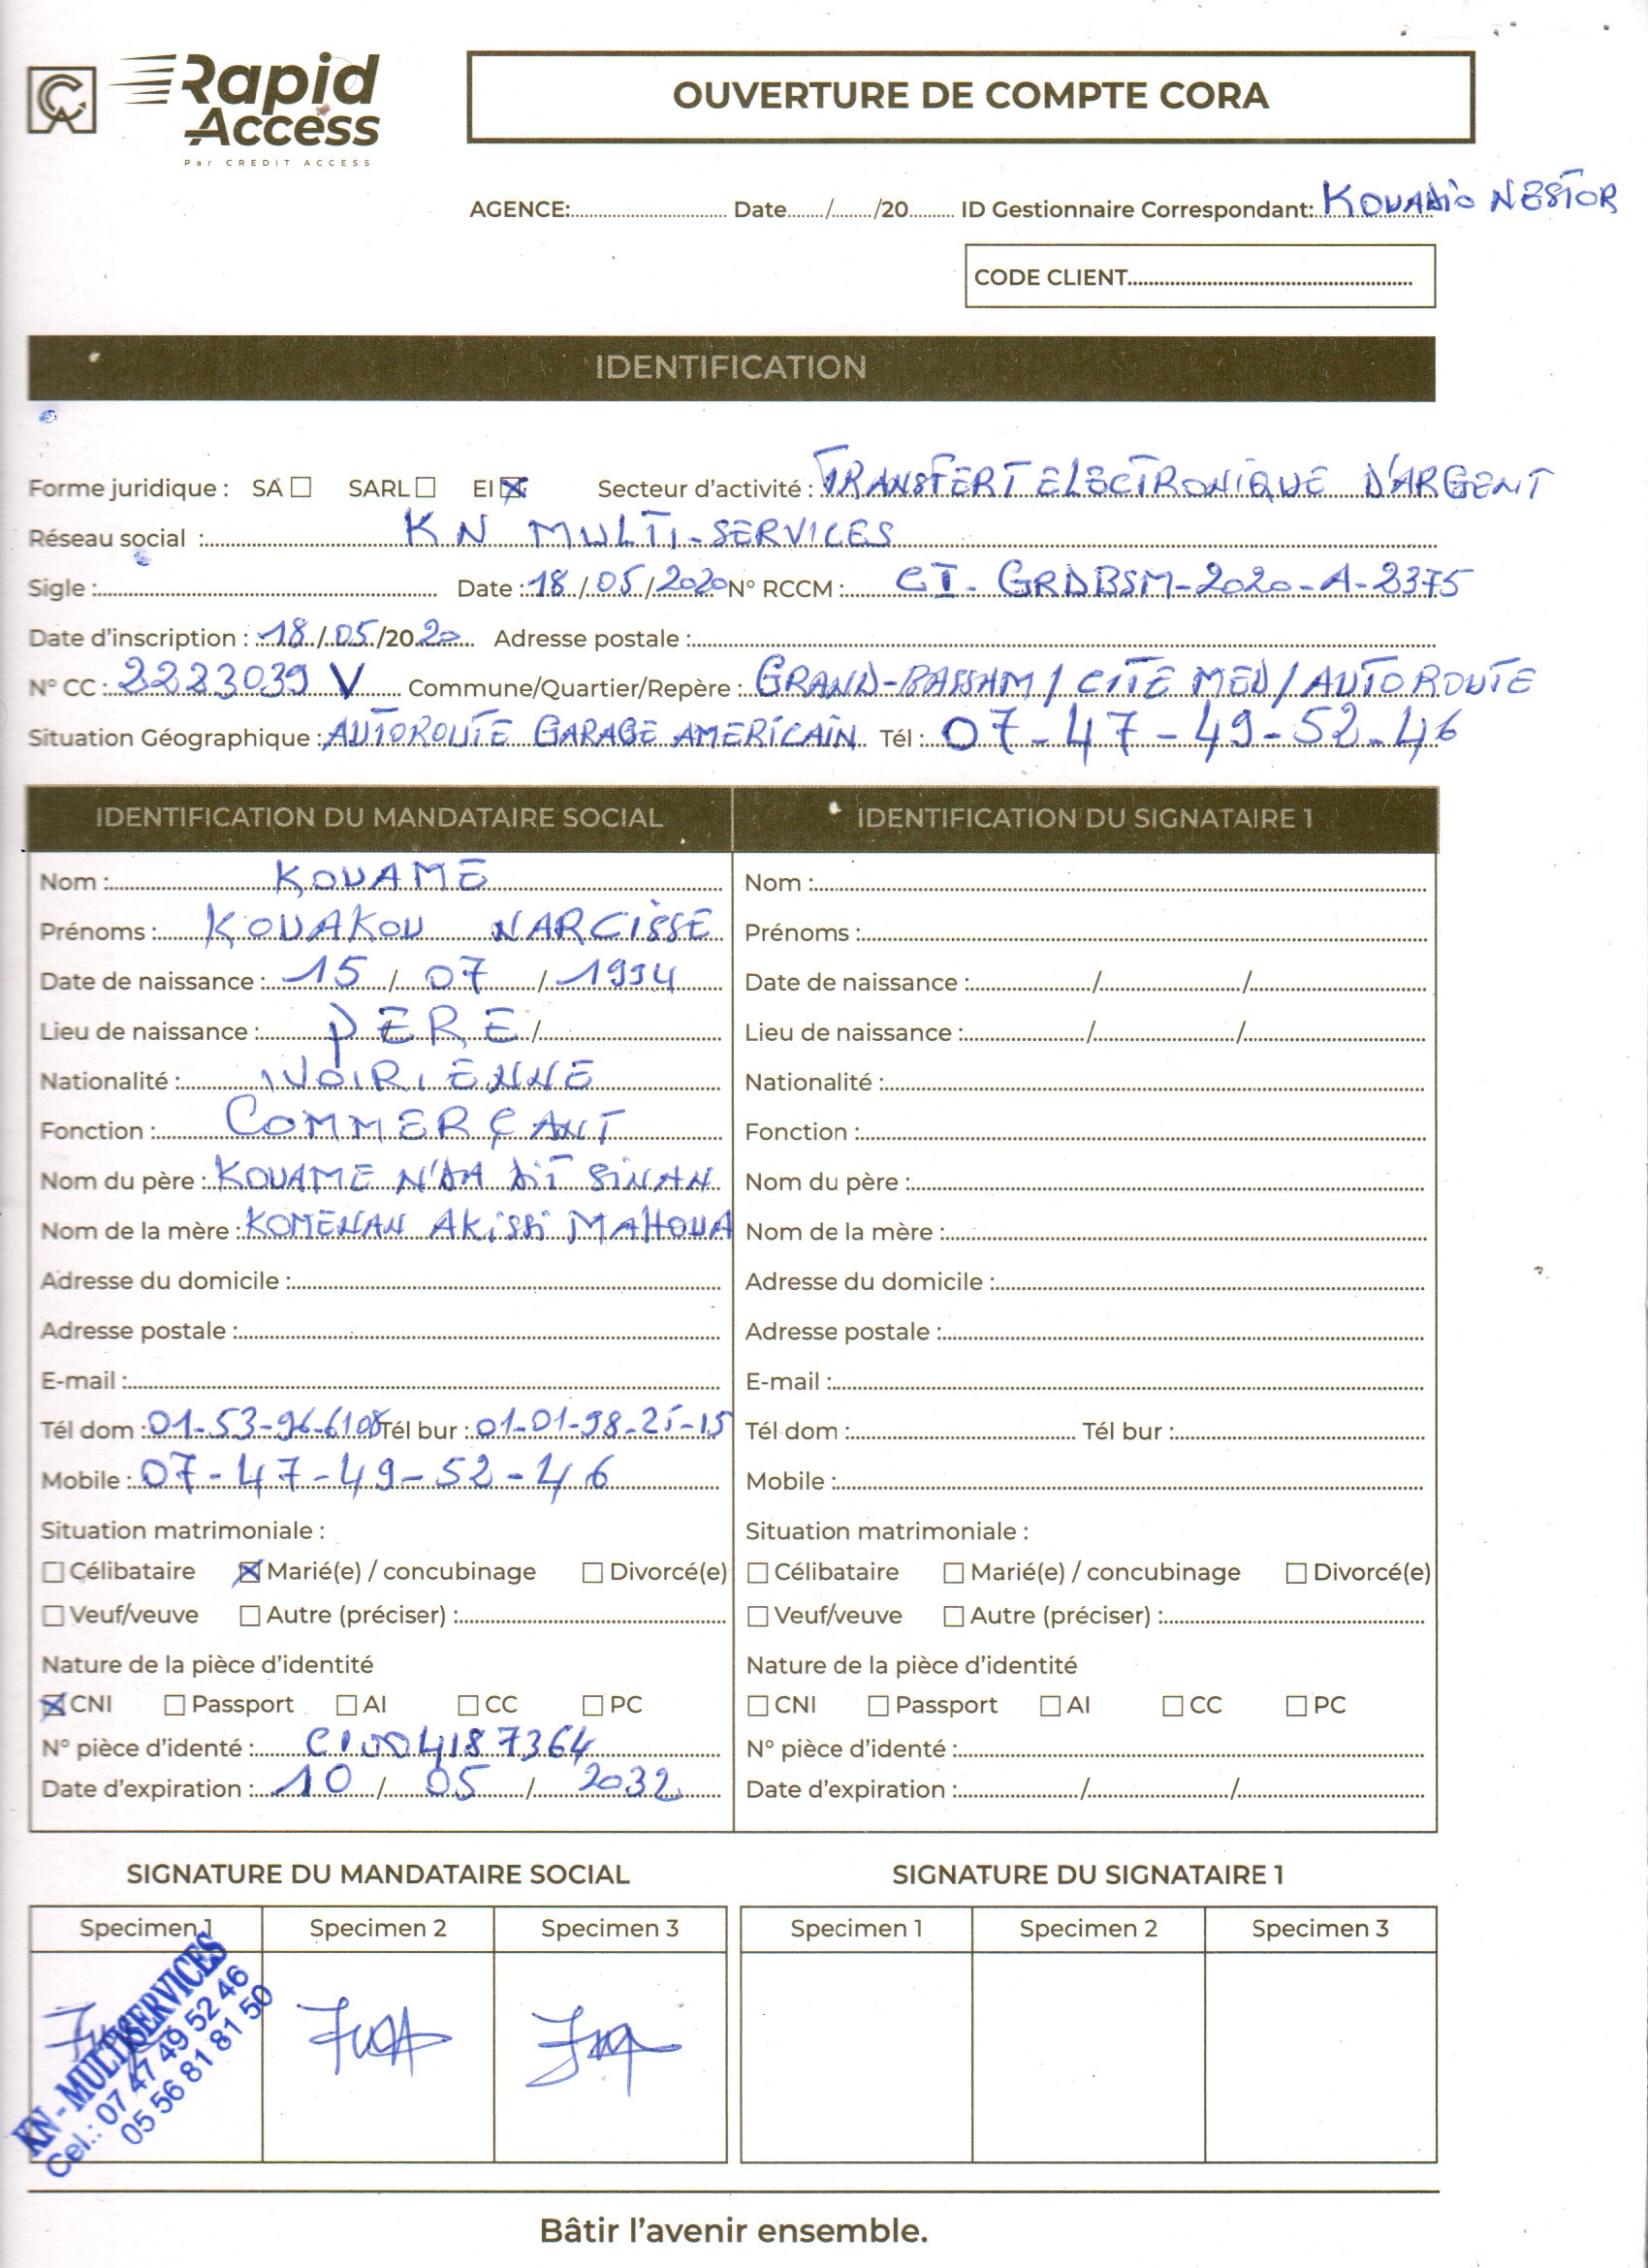 Rapid
Access
Par CREDIT ACCESS
OUVERTURE DE COMPTE CORA
AGENCE:........ Date....../....../20........ ID Gestionnaire Correspondant: KOUADIO NESTOR
CODE CLIENT........
IDENTIFICATION
Forme juridique : SA ☐ SARL ☐ EI ☒ Secteur d'activité : TRANSFERT ELECTRONIQUE D'ARGENT
Réseau social : KN MULTI-SERVICES
Sigle :........ Date : 18 / 05 / 2020 N° RCCM : CI-GRDBSM-2020-A-2375
Date d'inscription : 18 / 05 /20 20 Adresse postale :........
N° CC : 2223039 V Commune/Quartier/Repère : GRAND-BASSAM / CITE MED / AUTOROUTE
Situation Géographique : AUTOROUTE GARAGE AMERICAIN Tél : 07-47-49-52-46
IDENTIFICATION DU MANDATAIRE SOCIAL IDENTIFICATION DU SIGNATAIRE 1
Nom : KOUAME Nom :........
Prénoms : KOUAKOU NARCISSE Prénoms :........
Date de naissance : 15 / 07 / 1994 Date de naissance :......../......../........
Lieu de naissance : PERE / Lieu de naissance :......../......../........
Nationalité : IVOIRIENNE Nationalité :........
Fonction : COMMERÇANT Fonction :........
Nom du père : KOUAME N'DA DIT SINAN Nom du père :........
Nom de la mère : KOMENAN AKISSI MAHOUA Nom de la mère :........
Adresse du domicile :........ Adresse du domicile :........
Adresse postale :........ Adresse postale :........
E-mail :........ E-mail :........
Tél dom : 01-53-96-6108 Tél bur : 01-01-98-25-15 Tél dom :........ Tél bur :........
Mobile : 07-47-49-52-46 Mobile :........
Situation matrimoniale : Situation matrimoniale :
☐ Célibataire ☒ Marié(e) / concubinage ☐ Divorcé(e) ☐ Célibataire ☐ Marié(e) / concubinage ☐ Divorcé(e)
☐ Veuf/veuve ☐ Autre (préciser) :........ ☐ Veuf/veuve ☐ Autre (préciser) :........
Nature de la pièce d'identité Nature de la pièce d'identité
☒ CNI ☐ Passport ☐ AI ☐ CC ☐ PC ☐ CNI ☐ Passport ☐ AI ☐ CC ☐ PC
N° pièce d'identé : CI004187364 N° pièce d'identé :........
Date d'expiration : 10 / 05 / 2032 Date d'expiration :......../......../........
SIGNATURE DU MANDATAIRE SOCIAL SIGNATURE DU SIGNATAIRE 1
Specimen 1 Specimen 2 Specimen 3 Specimen 1 Specimen 2 Specimen 3
KN-MULTISERVICES
Cel.: 07 47 49 52 46
05 56 81 81 50
Bâtir l'avenir ensemble.